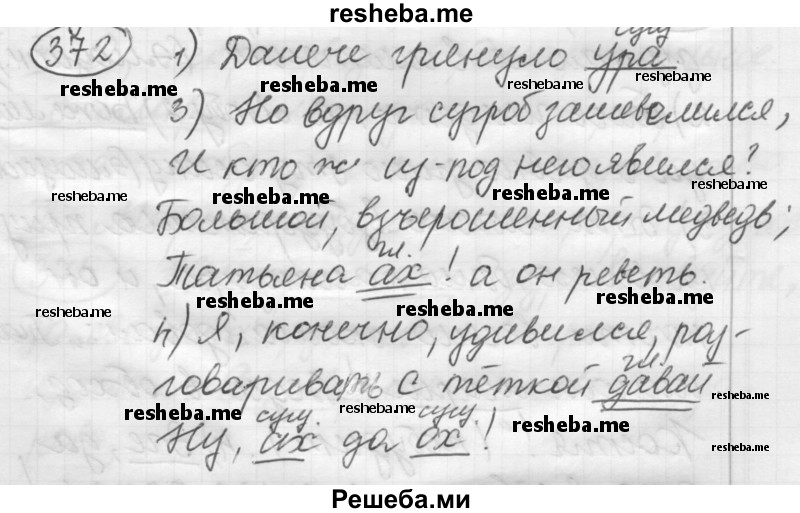 resheba.me
сущ.
372 1) Далече грянуло ура.
resheba.me resheba.me resheba.me
3) Но вдруг сугроб зашевелился,
И кто ж из-под него явился?
resheba.me resheba.me resheba.me
Большой, взъерошенный медведь;
гл.
Татьяна ах! а он реветь.
resheba.me resheba.me resheba.me
4) Я, конечно, удивился, раз-
гл.
говаривать с тёткой давай
resheba.me resheba.me resheba.me resheba.me
сущ. сущ.
Ну, ах да ох!
resheba.me
Решеба.ми